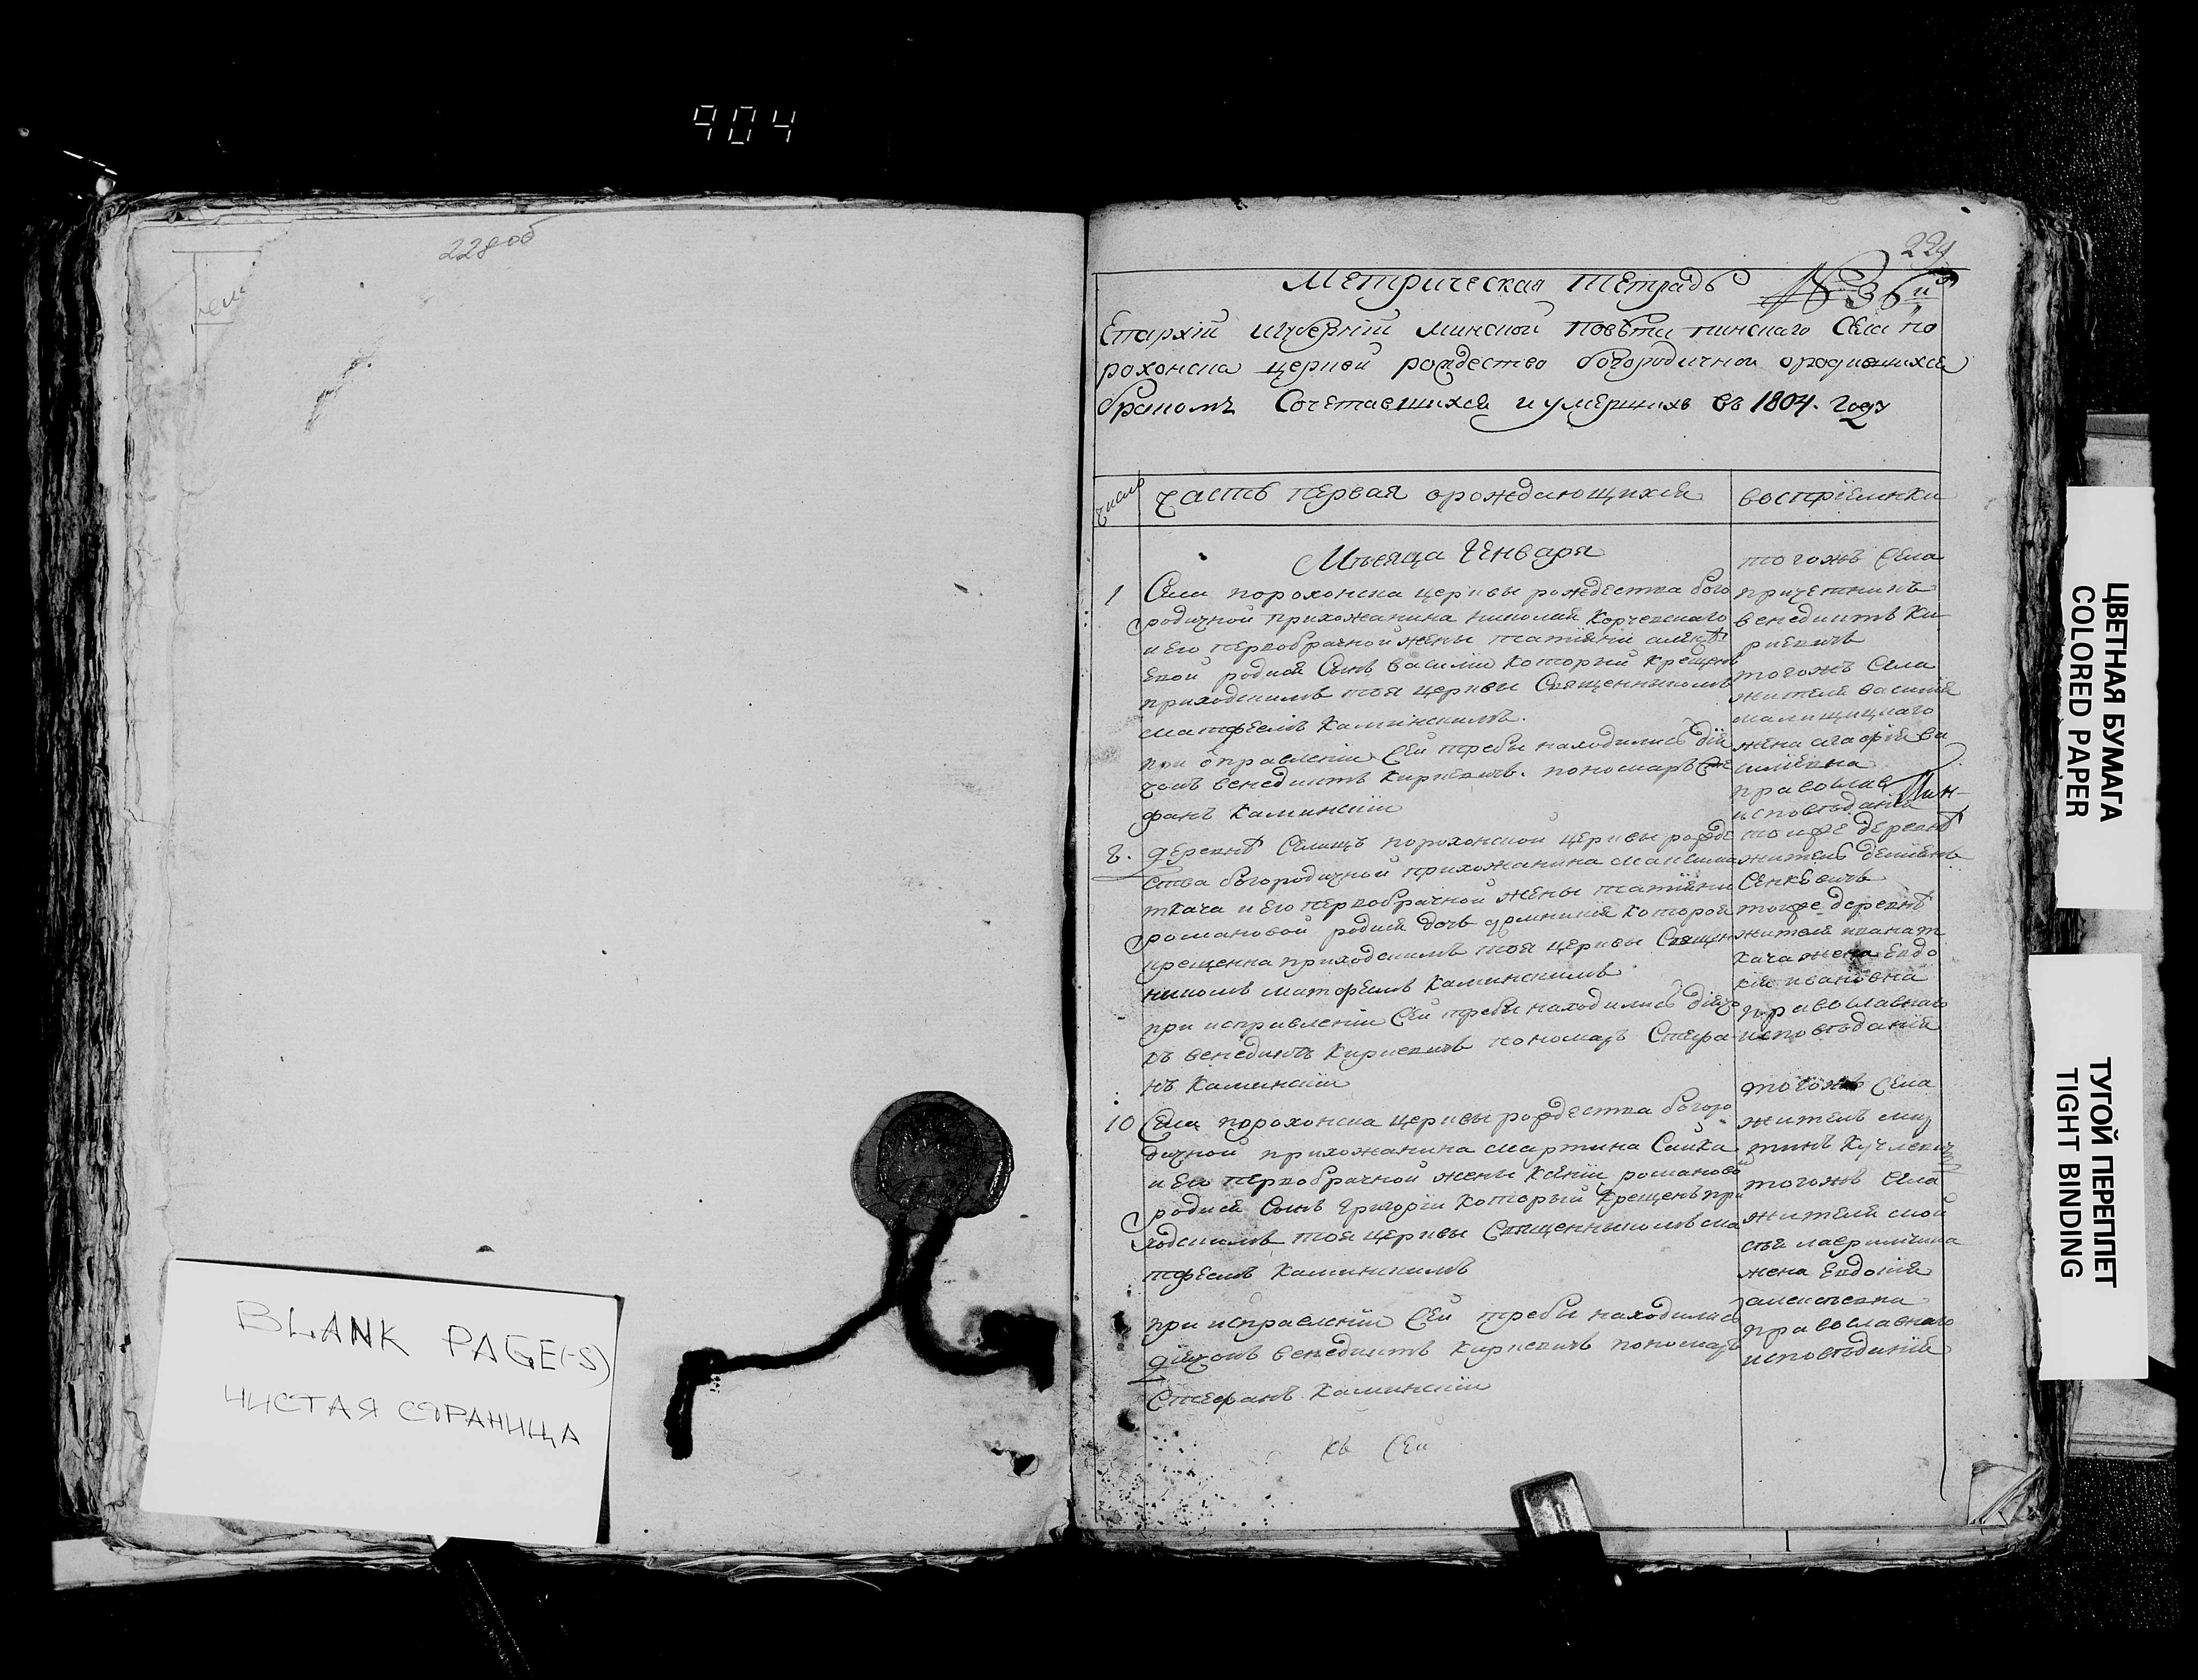 904
228об
229
Метрическая тетрадь № 36й
Епархіи игуберніи минской повѣта пинскаго Села По
рохонска церкви рождество богородичной ородившихся
бракомъ Сочетавшихся и умершихъ въ 1804. году
число
часть первая орождающихся
воспріемники
Мѣсяца Генваря
1
Села порохонска церквы рождества бого
родичной прихожанина николая Корчевскаго
и его первобрачной жены татіяни алекѣ
евой родися Сынъ василій который крещенъ
приходскимъ тоя церкви Священникомъ
матфеемъ Каминскимъ.
при отправленіи Сей требы находились дія
чокъ венедиктъ Киркевичъ. пономаръ Сте
фанъ Каминскій
тогожъ Села
причетникъ
венедиктъ Ки-
ркевичъ
тогожъ Села
жителя василія
жена агафія ва
силіевна
православ
исповѣданія
Пин-
8.
деревнѣ Селищъ порохонской церквы рожде
ства богородичной прихожанина максима
ткача и его первобрачной жены татіяни
романовой родися дочь домникия которой
крещенна приходскимъ тоя церквы Священ
никомъ матфеемъ Каминскимъ
при исправленіи Сей требы находились діячо
къ венедиктъ Киркевичъ пономаръ Стефа
нъ Каминскій
тоижде деревнѣ
житель деміянъ
Сенкевичъ
тоижде деревнѣ
жителя ивана т
кача жена Евдо
кія ивановна
православнаго
исповѣданія
10
Села порохонска церквы рождества богоро
дичной прихожанина мартина Сайка
и Его первобрачной жени Ксѣніи романовой
родися Сынъ Григорій который крещенъ при
ходскимъ тоя церквы Священникомъ ма
тфеемъ Каминскимъ
при исправленіи Сей требы находились
діячокъ венедиктъ Киркевичъ пономаръ
Стефанъ Каминскій
тогожъ Села
житель
тогожъ Села
жителя мой
сѣя
жена Евдокія
алексѣевна
православнаго
исповѣданія
Къ Сей
BLANK PAGE(-S)
ЧИСТАЯ СТРАНИЦА
ЦВЕТНАЯ БУМАГА
COLORED PAPER
ТУГОЙ ПЕРЕПЛЕТ
TIGHT BINDING